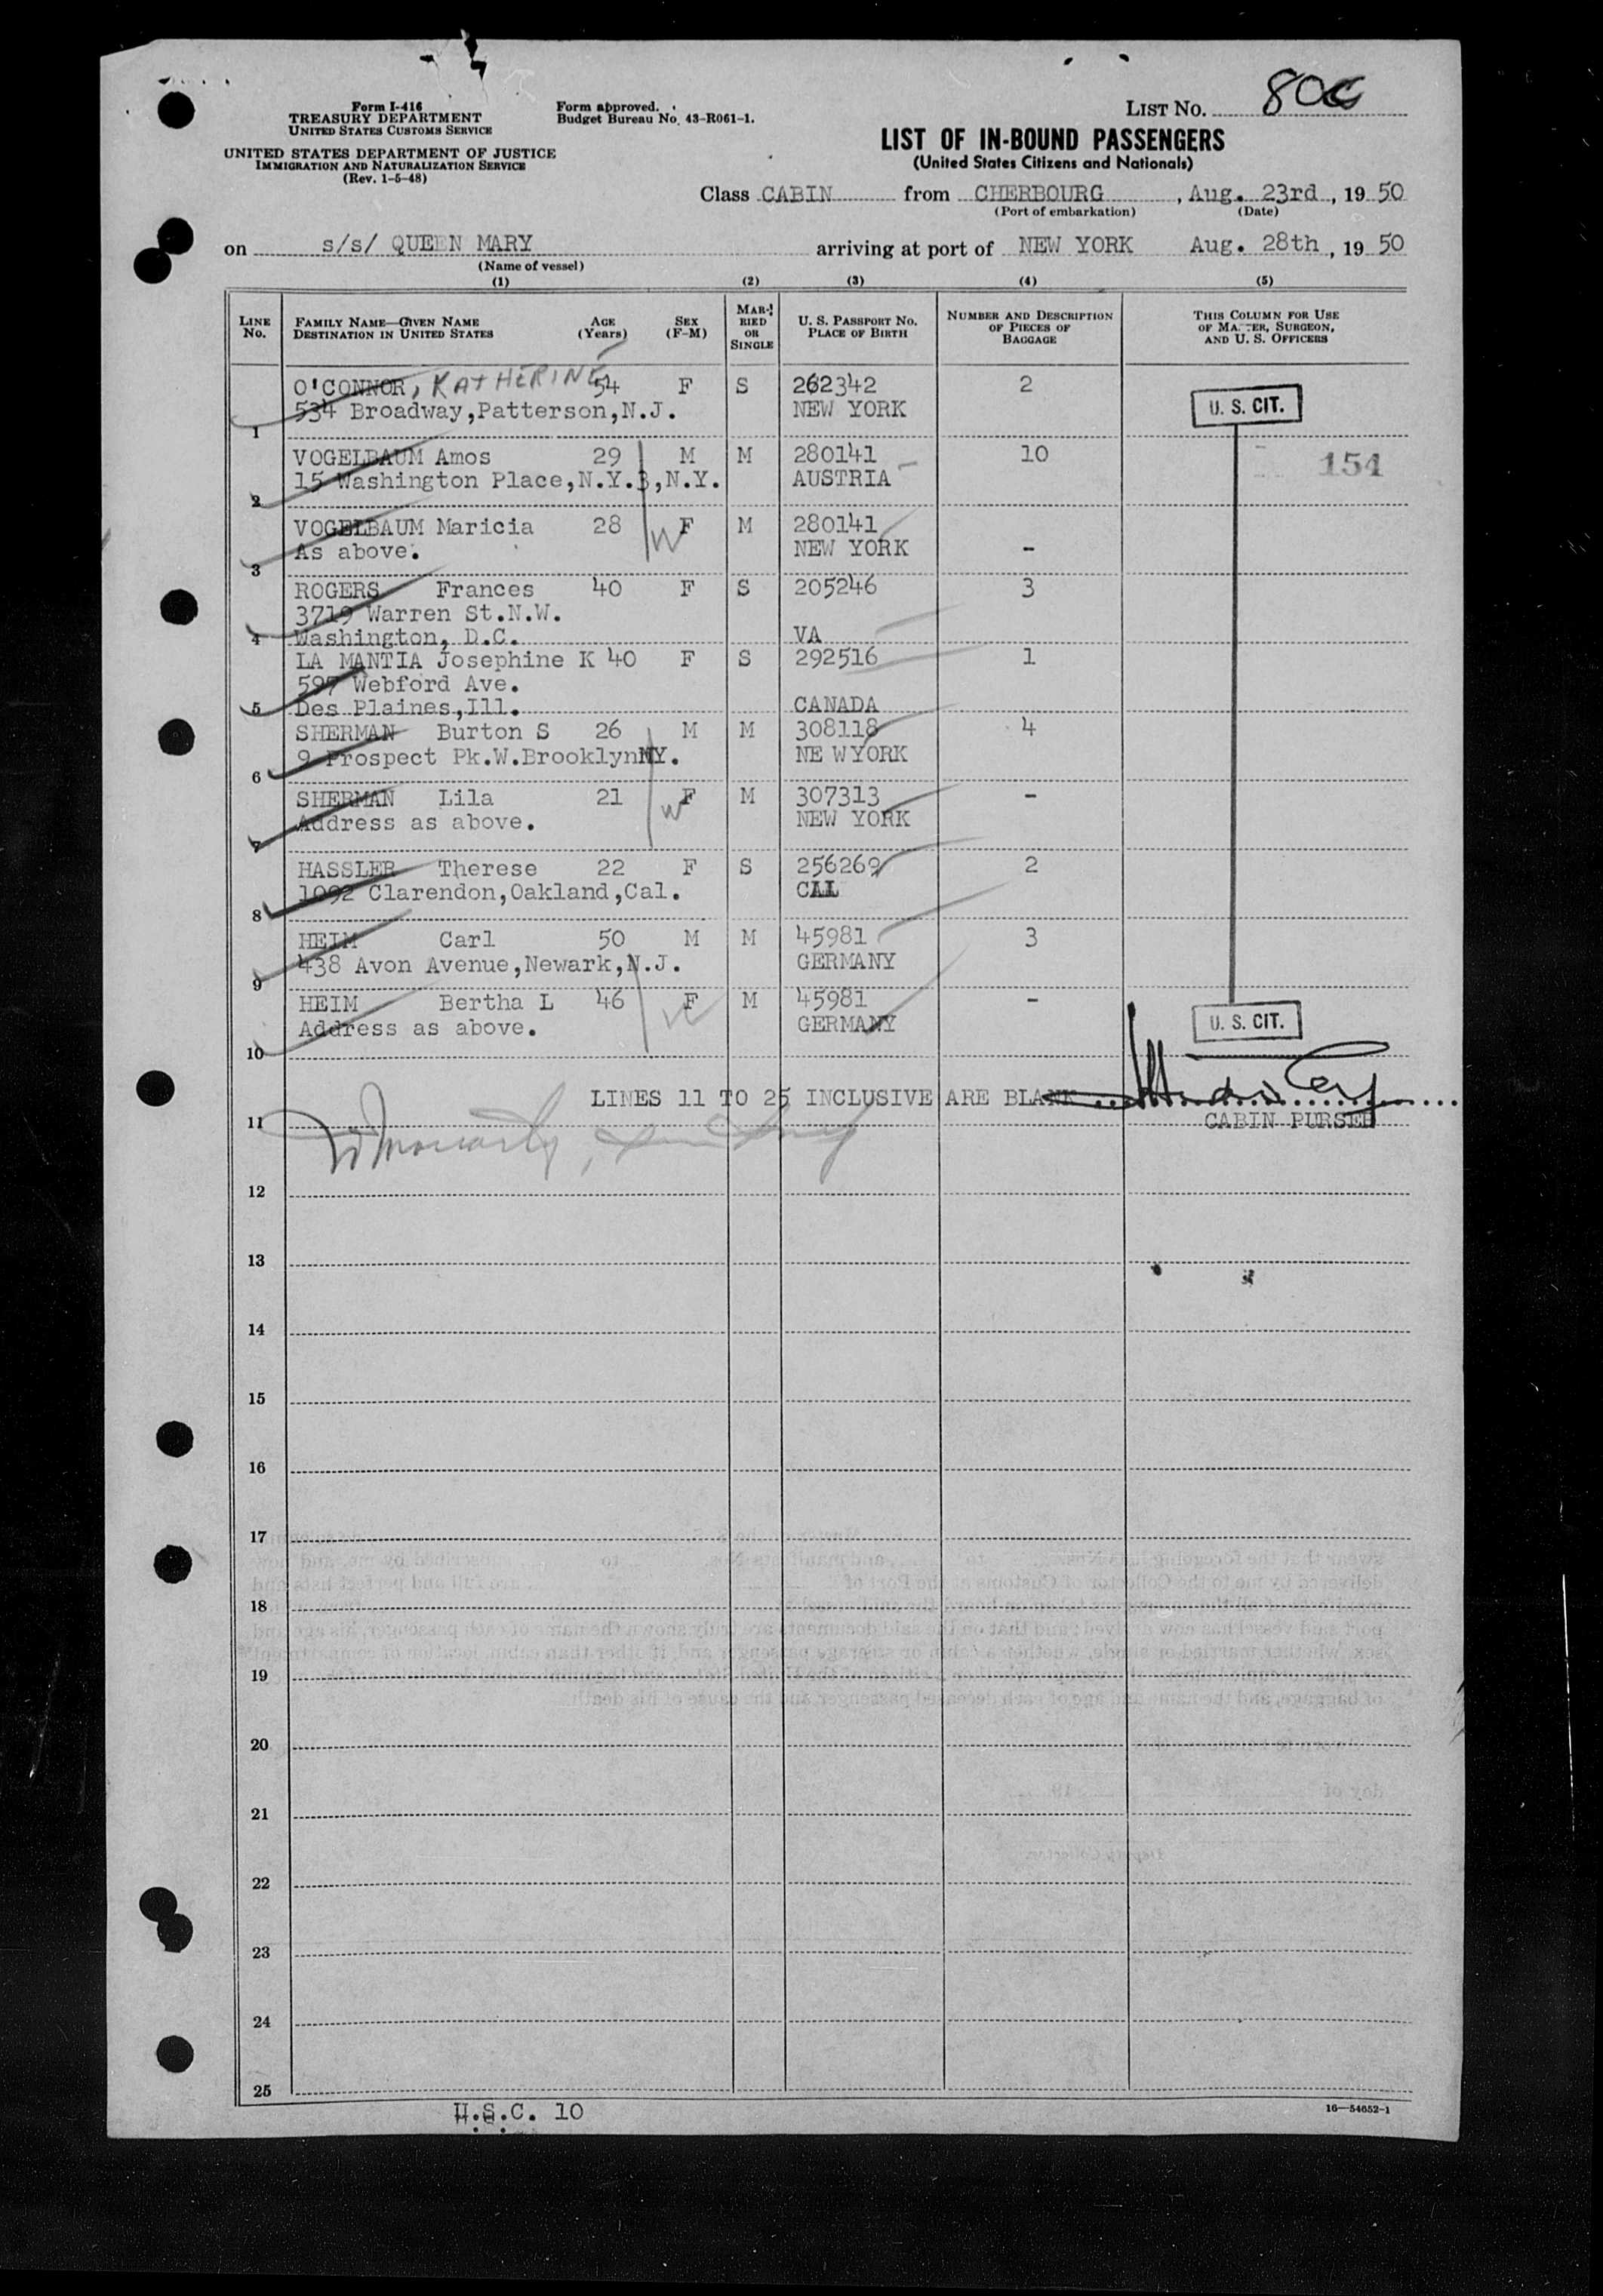 Form I-416
TREASURY DEPARTMENT
UNITED STATES CUSTOMS SERVICE
Form approved.
Budget Bureau No. 43-R061-1.
LIST NO.
UNITED STATES DEPARTMENT OF JUSTICE
IMMIGRATION AND NATURALIZATION SERVICE
(Rev. 1-5-48)
LIST OF IN-BOUND PASSENGERS
(United States Citizens and Nationals)
Class CABIN from CHERBOURG, Aug. 23rd, 1950
(Port of embarkation) (Date)
on s/s/ QUEEN MARY arriving at port of NEW YORK Aug. 28th, 1950
(Name of vessel)
(1) (2) (3) (4) (5)
LINE No.
FAMILY NAME—GIVEN NAME
DESTINATION IN UNITED STATES
AGE (Years)
SEX (F-M)
MARRIED OR SINGLE
U. S. PASSPORT NO.
PLACE OF BIRTH
NUMBER AND DESCRIPTION OF PIECES OF BAGGAGE
THIS COLUMN FOR USE OF MASTER, SURGEON, AND U. S. OFFICERS
O'CONNOR, KATHERINE 54 F S 262342 2
U. S. CIT.
534 Broadway,Patterson,N.J. NEW YORK
1
VOGELBAUM Amos 29 M M 280141 10
154
15 Washington Place,N.Y.3,N.Y. AUSTRIA
2
VOGELBAUM Maricia 28 W F M 280141
As above. NEW YORK -
3
ROGERS Frances 40 F S 205246 3
3719 Warren St.N.W.
4 Washington, D.C. VA
LA MANTIA Josephine K 40 F S 292516 1
597 Webford Ave.
5 Des Plaines,Ill. CANADA
SHERMAN Burton S 26 M M 308118 4
9 Prospect Pk.W.BrooklynNY. NE WYORK
6
SHERMAN Lila 21 W F M 307313 -
Address as above. NEW YORK
7
HASSLER Therese 22 F S 256269 2
1092 Clarendon,Oakland,Cal. CAL
8
HEIM Carl 50 M M 45981 3
438 Avon Avenue,Newark,N.J. GERMANY
9
HEIM Bertha L 46 W F M 45981 -
Address as above. GERMANY
U. S. CIT.
10
LINES 11 TO 25 INCLUSIVE ARE BLANK
11
CABIN PURSER
12
13
14
15
16
17
18
19
20
21
22
23
24
25
U.S.C. 10
16—54652-1